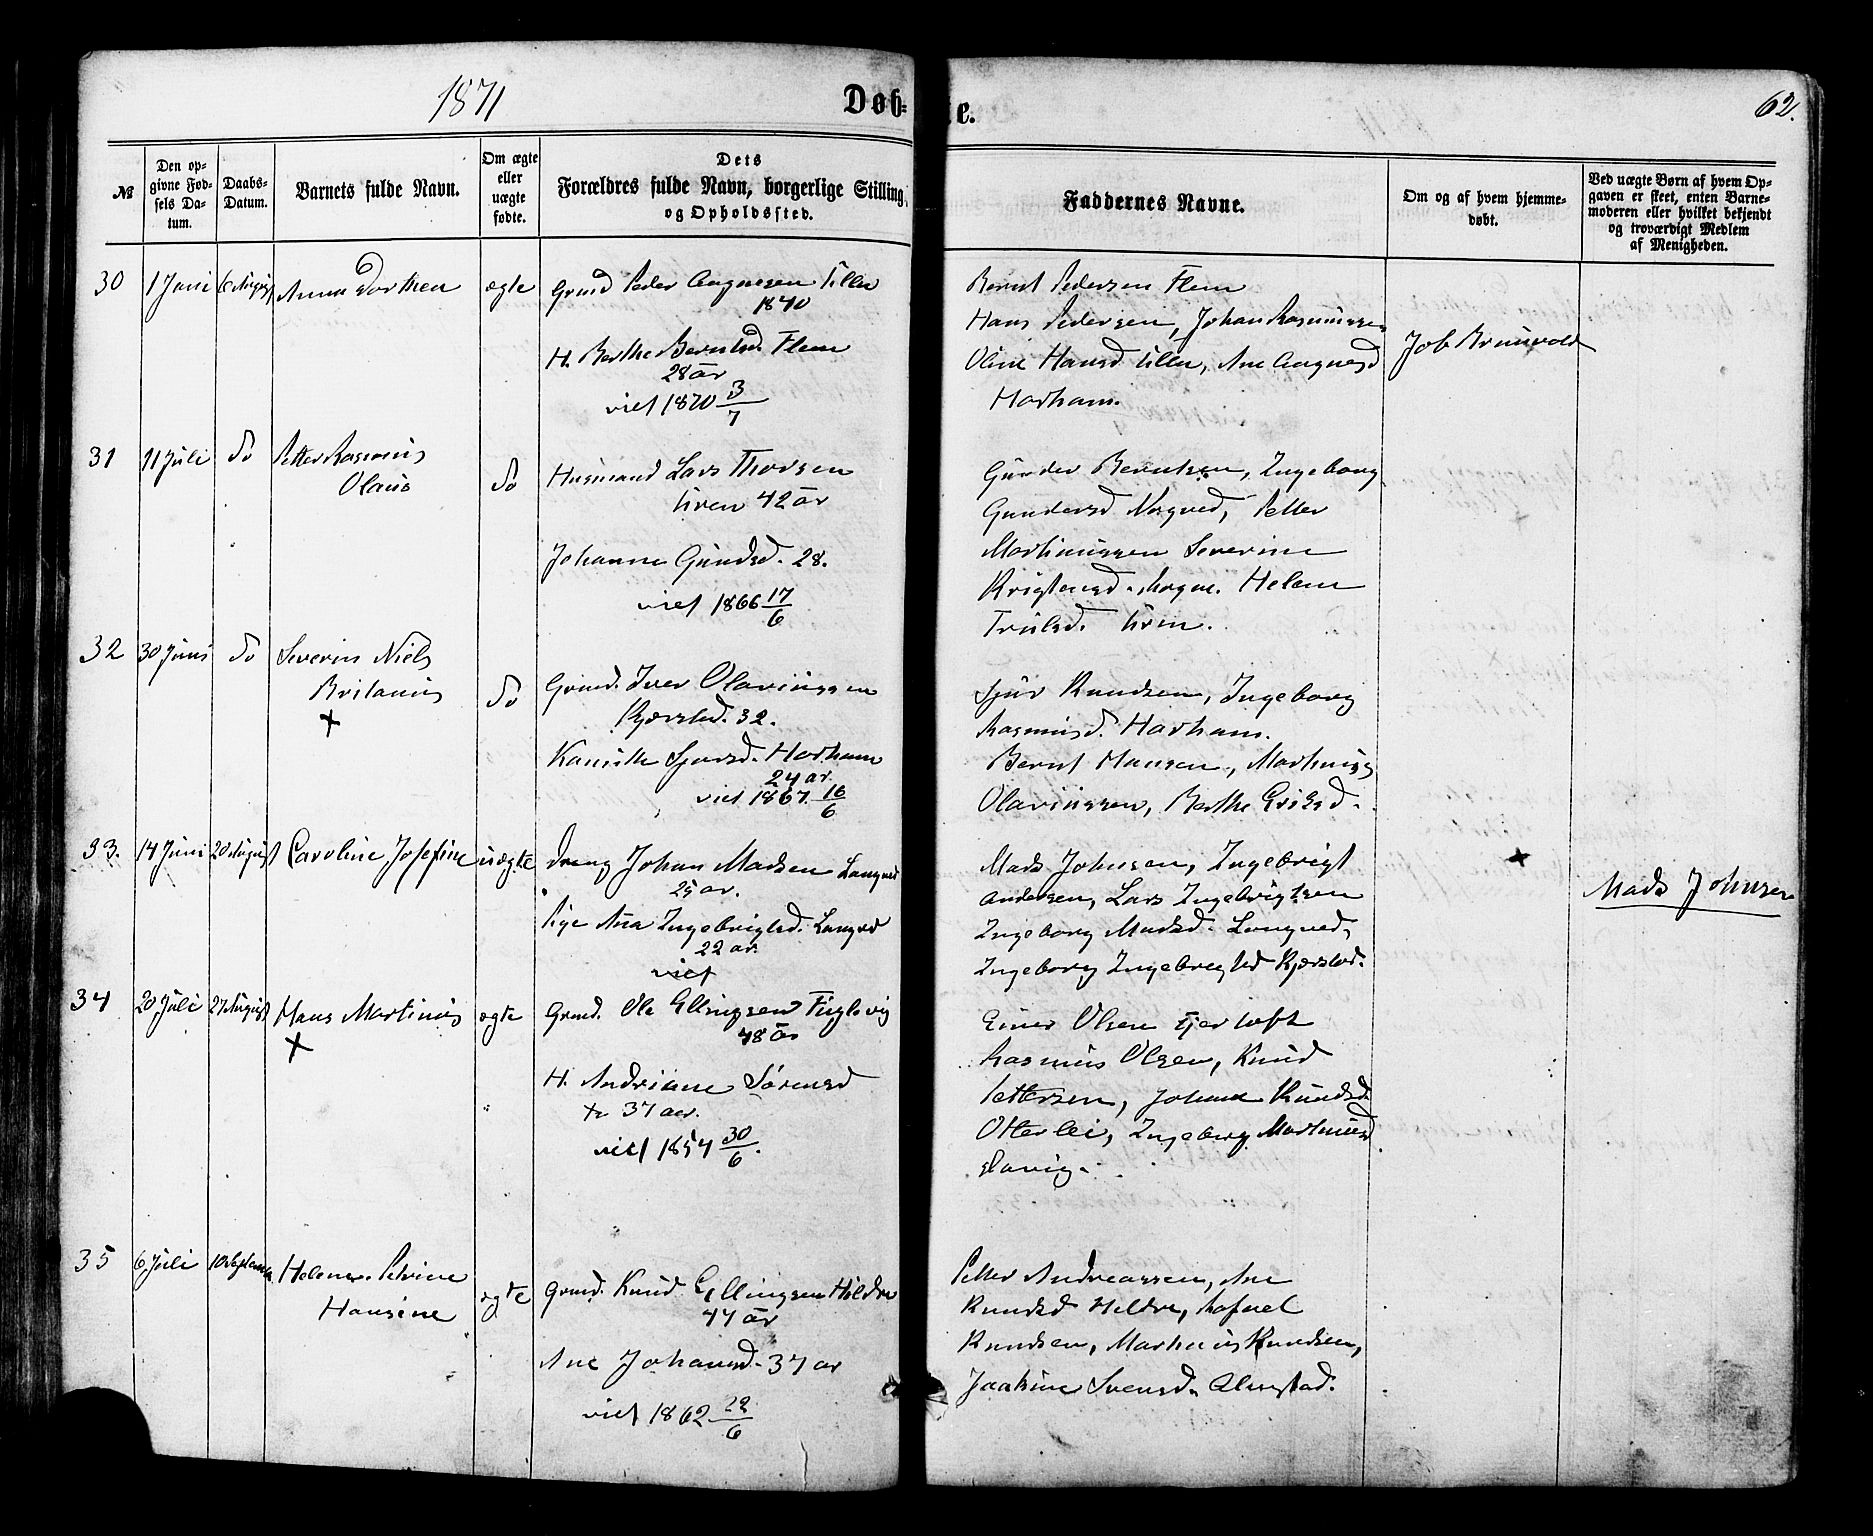 1871
Døb-
e.
62.
№
Den op-
givne Fød-
sels Da-
tum.
Daabs-
Datum.
Barnets fulde Navn.
Om ægte
eller
uægte
fødte.
Dets
Forældres fulde Navn, borgerlige Stilling,
og Opholdssted.
Faddernes Navne.
Om og af hvem hjemme-
døbt.
Ved uægte Børn af hvem Op-
gaven er skeet, enten Barne-
moderen eller hvilket bekjendt
og troværdigt Medlem
af Menigheden.
30
1 Juni
6 August
Anna Dorthea
ægte
Grmd Peder Aagnesen Tiller
1840
H. Berthe Berntsd. Flem
28 år
viet 1870 3/7
Bernt Pedersen Flem
Hans Pedersen, Johan Rasmussen
Oline Hansd Tiller, Ane Aagnesd
Harham.
Job Brunvold
31
11 Juli
do
Petter Rasmus
Olaus
do
Husmand Lars Thorsen
Uren 42 år
Johanne Gundsd. 28.
viet 1866 17/6
Gunder Berntsen, Ingeborg
Gundersd Nogved, Petter
Martinussen Severine
Kristensd. Helene
Trulsd. Uren.
32
30 Juni
do
Severin Niels
Britanus
+
do
Grmd. Iver Olavinussen
Kjerstad. 32.
Kamille Sjursd. Harham
24 ar
viet 1867. 16/6
Sjur Knudsen, Ingeborg
Rasmusd. Harham.
Bernt Hansen, Martinus
Olavinussen, Berthe Eriksd.
33.
14 Juni
20 August
Caroline Josefine
uægte
Dreng Johan Madsen Longved
25 ar.
Pige Ana Ingebrigtsd. Longved
22 ar.
viet
Mads Johnsen, Ingebrigt
Andersen, Lars Ingebrigtsen
Ingeborg Madsd. Longved,
Ingeborg Ingebrigtsd Kjerstad.
+
Mads Johnsen
34
20 Juli
27 August
Hans Martinus
+
ægte
Grmd. Ole Ellingsen Fuglevig
48 år
H. Andriane Sørensd
37 aar.
viet 1854 30/6.
Einer Olsen Fjertoft
Rasmus Olsen, Knud
Pettersen, Johanne Knudsd.
Otterlei, Ingeborg Martinusd
Slavig.
35
6 Juli
10 September
Helene Petrine
Hansine
ægte
Grmd. Knud Ellingsen Hildre
44 år
Ane Johansd. 37 ar
viet 1862 22/6
Petter Andreassen, Ane
Knudsd Hildre, Rafael
Knudsen, Martinus Knudsen,
Jaakine Svensd. Almestad.